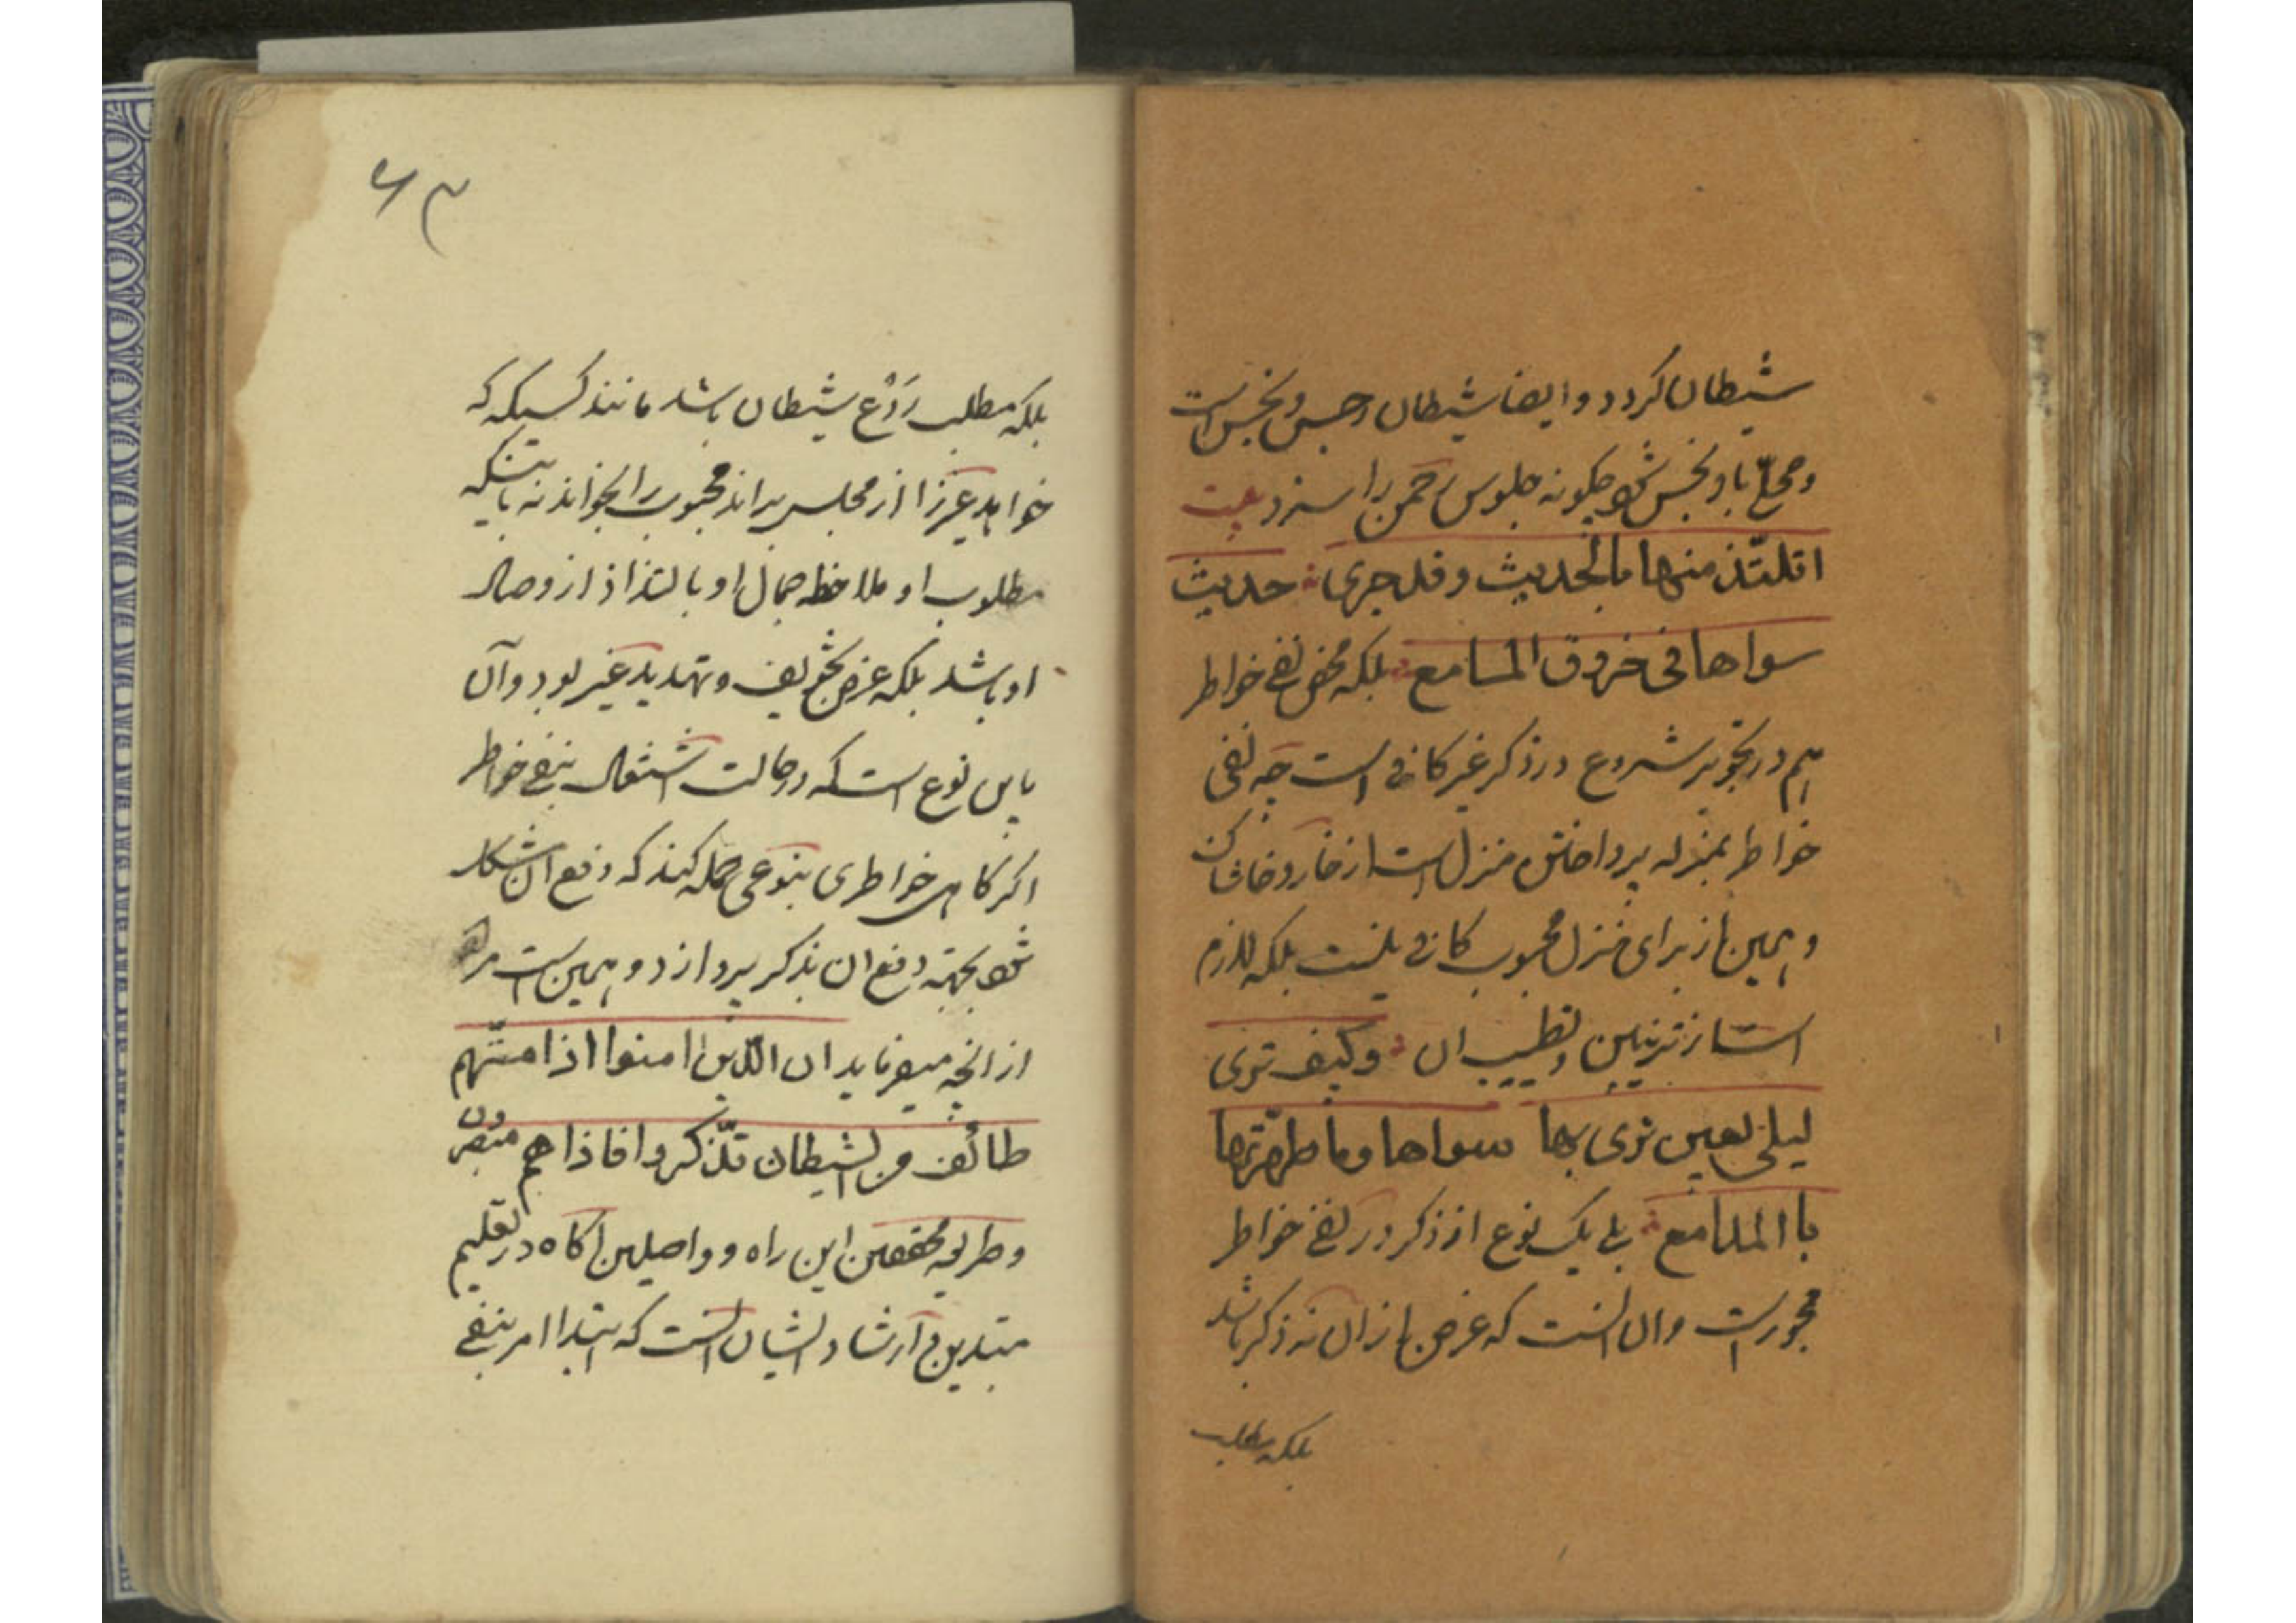 شیطان گردد و ایضا شیطان رجس و نجس است
و محلّ با و نجس شود چگونه جلوس رحمن را سزد بیت
اتلتذ منها بالحدیث و قد جری حدیث
سواها فی خروق المسامع بلکه محض نفی خواطر
هم در تجویز شروع در ذکر غیر کافی است چه نفی
خواطر بمنزله پرداختن منزل است از خار و خاشاک
و همین از برای منزل محبوب کافی نیست بلکه لازم
است از تزئین و تطییب ان و کیف تری
لیلی بعین تری بها سواها و ما طهّرتها
باالمدامع بلی یک نوع از ذکر در نفی خواطر
مجوز است وان انست که غرض از ان نه ذکر باشد
بلکه مطلب
۶۳
بلکه مطلب رَدْع شیطان باشد مانند کسیکه که
خواهد غیر را از مجلس براند محبوب را بخواند نه باینکه
مطلوب او ملاحظه جمال او یا التذاذ از وصال
او باشد بلکه غرض تخویف و تهدید غیر بود و آن
باین نوع است که در حالت اشتغال بنفی خواطر
اگر گاهی خواطری بنوعی حمله کند که دفع ان مشکل
شود بجهته دفع ان بذکر پردازد و همین است مراد
از انچه میفرماید ان الّذین امنوا اذا مسّهم
طائف من الشیطان تذّکروا فاذا هم مبصرون
و طریقه محققین این راه و واصلین اکاه در تعلیم
مبتدیین و ارشاد ایشان انست که ابتدا امر بنفی